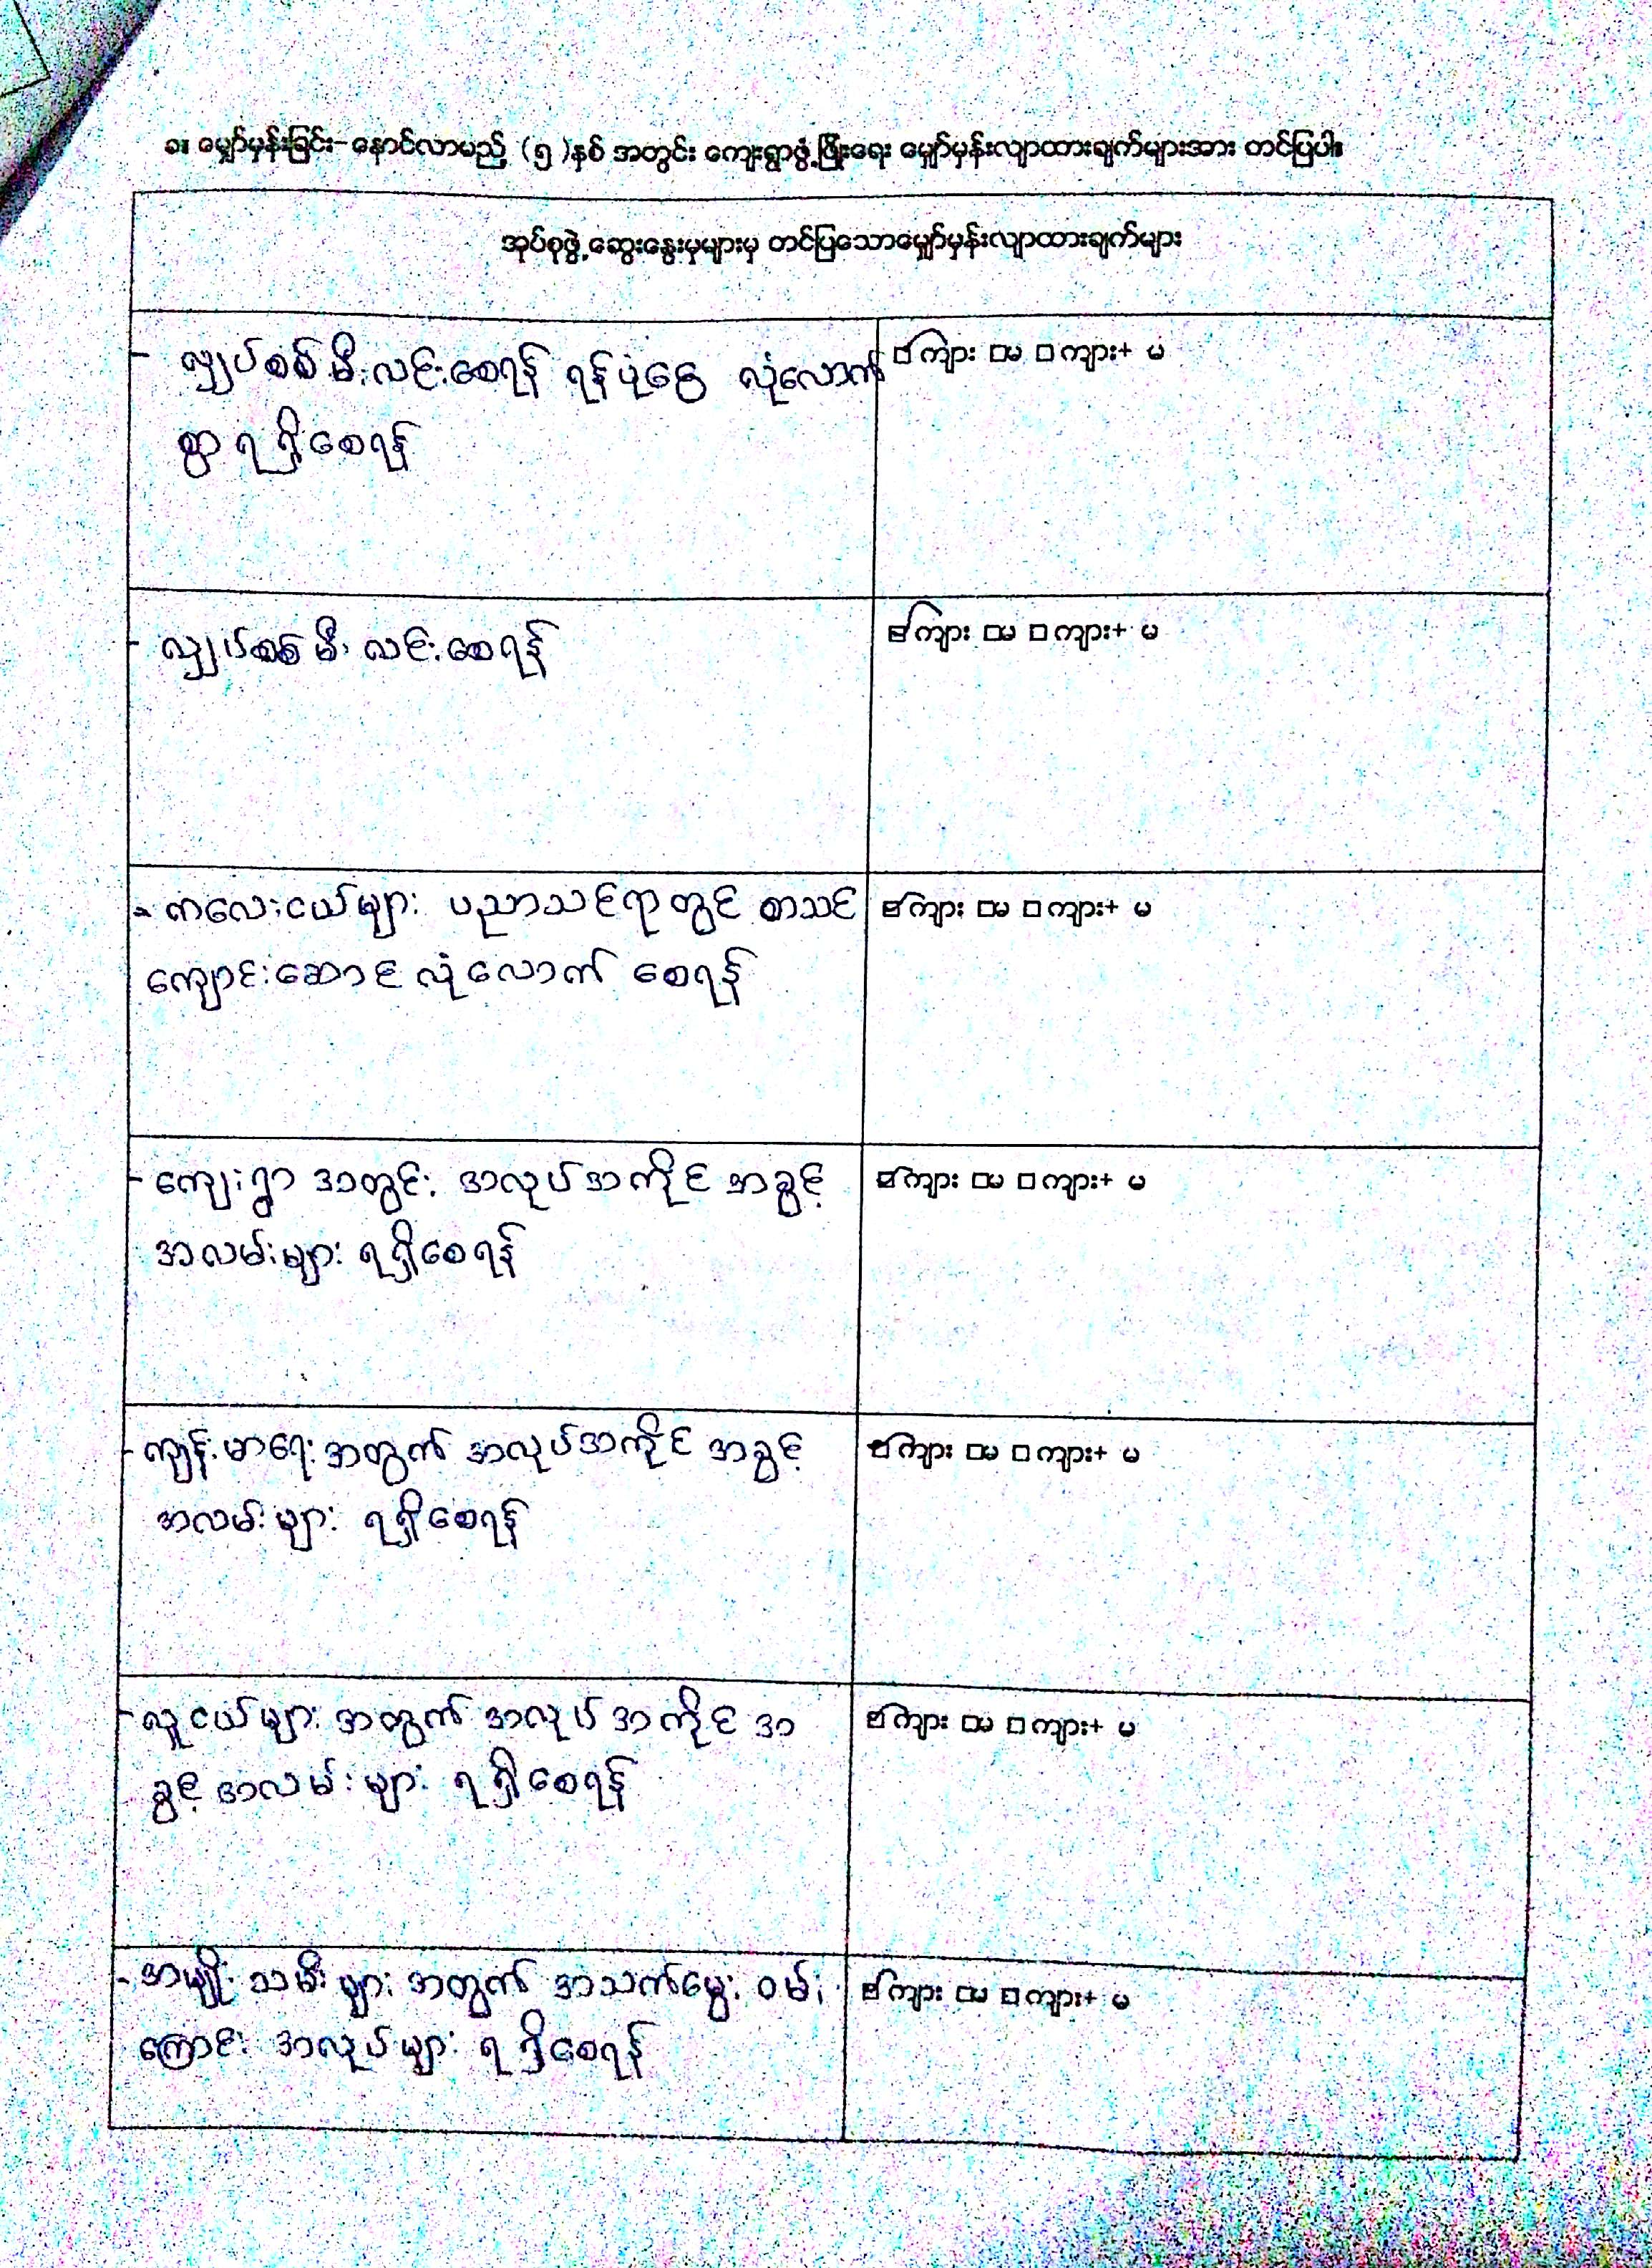 ခ။ မျှော်မှန်းခြင်း- နောင်လာမည့် (၅)နှစ် အတွင်း ကျေးရွာဖွံ့ဖြိုးရေး မျှော်မှန်းလျာထားချက်များအား တင်ပြပါ။
အုပ်စုဖွဲ့ဆွေးနွေးမှုများမှ တင်ပြသောမျှော်မှန်းလျာထားချက်များ
- လျှပ်စစ်မီးလင်းစေရန် ရန်ပုံငွေ လုံလောက်
စွာ ရရှိစေရန်
☑ကျား □မ □ကျား+ မ
- လျှပ်စစ်မီး လင်းစေရန်
☑ကျား □မ □ကျား+ မ
- ကလေးငယ်များ ပညာသင်ရာတွင် စာသင်
ကျောင်းဆောင် လုံလောက် စေရန်
☑ကျား □မ □ကျား+ မ
- ကျေးရွာ အတွင်း အလုပ်အကိုင် အခွင့်
အလမ်းများ ရရှိစေရန်
☑ကျား □မ □ကျား+ မ
- ကျန်းမာရေး အတွက် အလုပ်အကိုင် အခွင့်
အလမ်းများ ရရှိစေရန်
☑ကျား □မ □ကျား+ မ
- လူငယ်များ အတွက် အလုပ်အကိုင် အ
ခွင့်အလမ်းများ ရရှိစေရန်
☑ကျား □မ □ကျား+ မ
- အမျိုးသမီးများ အတွက် အသက်မွေး ဝမ်း
ကြောင်း အလုပ်များ ရရှိစေရန်
☑ကျား □မ □ကျား+ မ